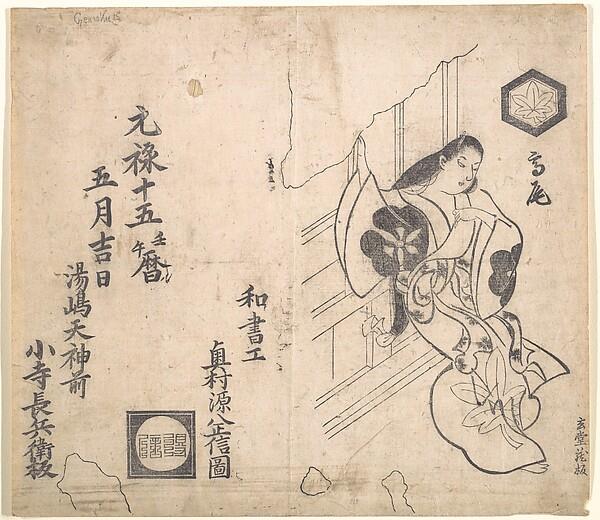 高尾
玄堂蔵板
和書工
奥村源八政信圖
元禄十五
壬午
暦
五月吉日
湯嶋天神前
小寺長兵衛板
Genroku 15